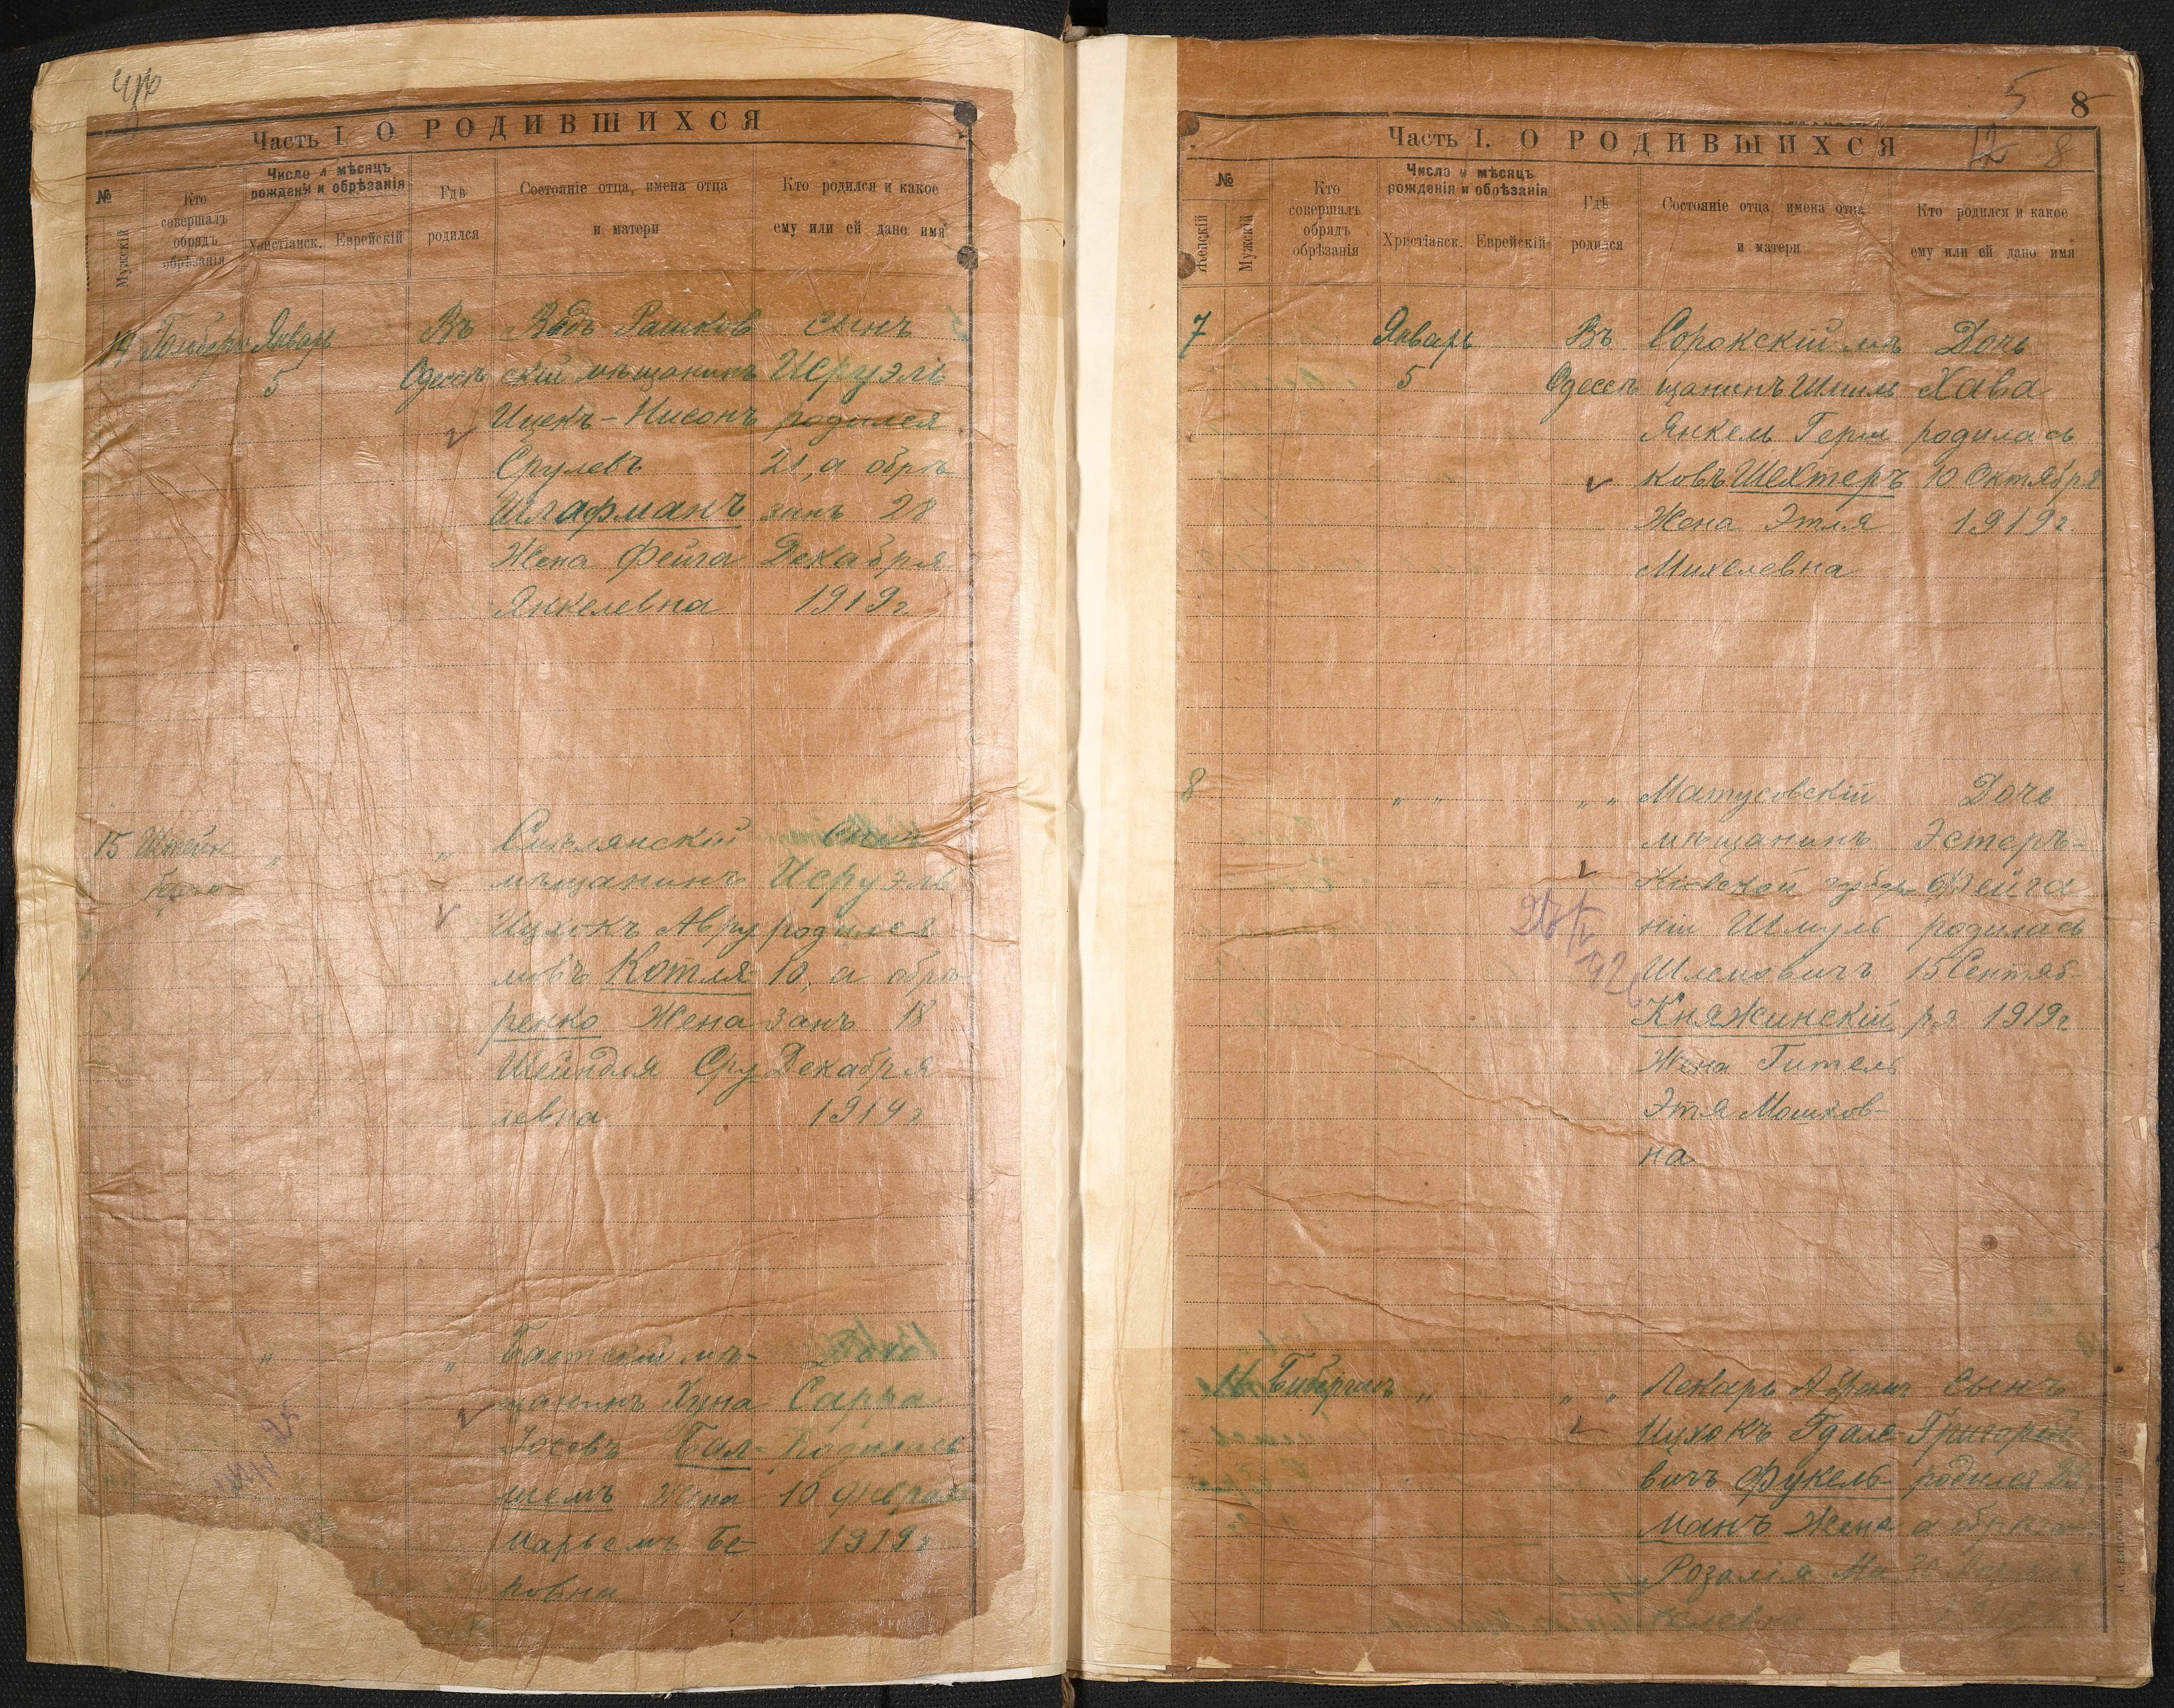 Часть I. О РОДИВШИХСЯ
№
Мужскій
Кто совершалъ обрядъ обрѣзанія
Число и мѣсяцъ рожденія и обрѣзанія
Христіанск.
Еврейскій
Гдѣ родился
Состояніе отца, имена отца и матери
Кто родился и какое ему или ей дано имя
14
Январь
5
Въ
Одессѣ
Вадъ-Рашков
скій мѣщанинъ
Ицекъ-Нисонъ
Срулевъ
Шлафманъ
Жена Фейга
Янкелевна
сынъ
Исруэль
родился
21, а обрѣ
занъ 28
Декабря
1919 г.
15
Штейн
берг
"
"
Смѣлянскій
мѣщанинъ
Ицхокъ Авру
мовъ Котля-
ренко Жена
Шейндля Сру
левна
Сынъ
Исруэль
родился
10, а обрѣ-
занъ 18
Декабря
1919 г
"
"
Балтскій мѣ-
щанинъ Хуна
Іосевъ Бал-
шемъ Жена
Марьемъ Бе-
ковна
Дочь
Сарра
Родилась
10 Февраля
1919 г
5
8
12
8
Часть I. О РОДИВШИХСЯ
№
Женскій
Мужскій
Кто совершалъ обрядъ обрѣзанія
Число и мѣсяцъ рожденія и обрѣзанія
Христіанск.
Еврейскій
Гдѣ родился
Состояніе отца, имена отца и матери
Кто родился и какое ему или ей дано имя
7
Январь
5
Въ
Одессѣ
Сорокскій мѣ
щанинъ Шмиль
Янкель Герш
ковъ Шехтеръ
Жена Этля
Михелевна
Дочь
Хава
родилась
10 Октября
1919 г.
8
" "
" "
Матусовскій
мѣщанинъ
Кіевской губер
ніи Шмуль
Шлемовичъ
Княжинскій
Жена Гитель
Этя Мошков-
на
Дочь
Эстеръ-
Фейга
родилась
15 Сентяб-
ря 1919 г
16
"
" "
Лекарь Абрам
Ицхокъ Гдале
вичъ Фукель-
манъ Жена
Розалія
Сынъ
Григорій
родился